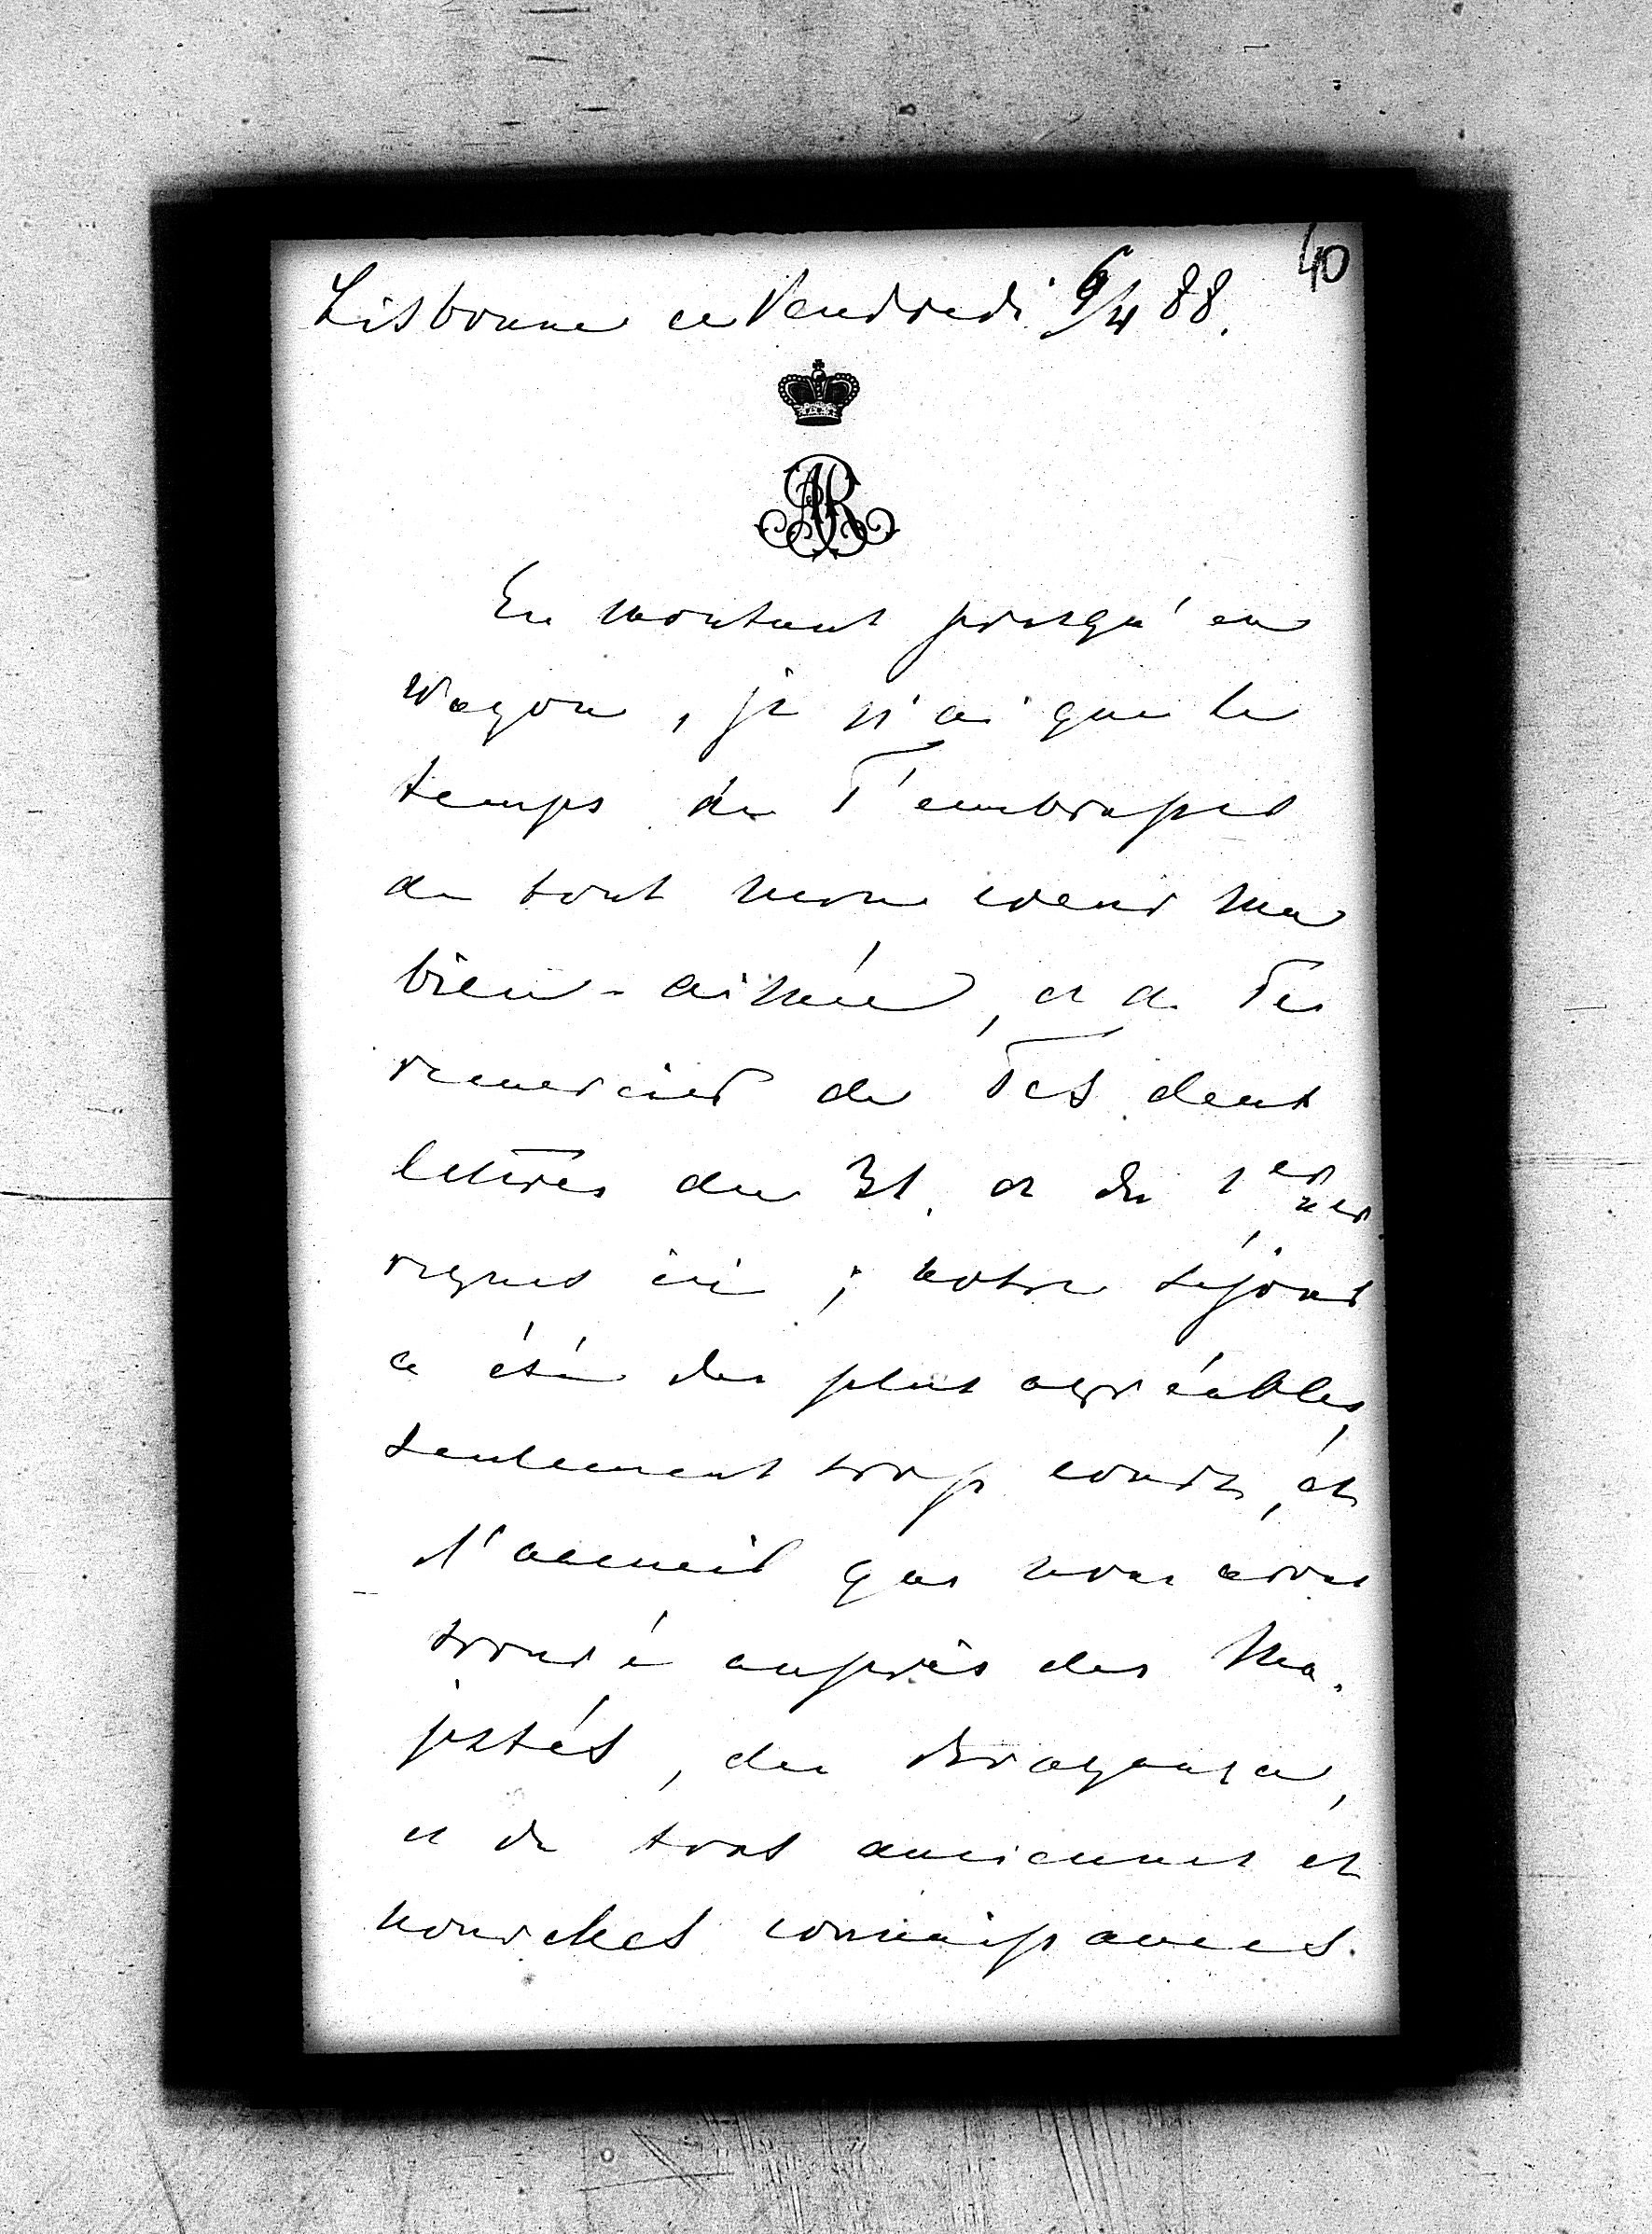 40
Lisbonne ce Vendredi 6/4 88.
AR
En montant presqu'en
wagon, je n'ai que le
temps de T'embrasser
de tout mon coeur ma
bien-aimée, et de Te
remercier de Tes deux
lettres du 31. et du 1er
reçues ici ; notre séjour
a été des plus agréables,
seulement trop court, et
l'accueil que nous avons
trouvé auprès des Ma-
jestés, des Bragança,
et de tous anciennes et
nouvelles connaissances.